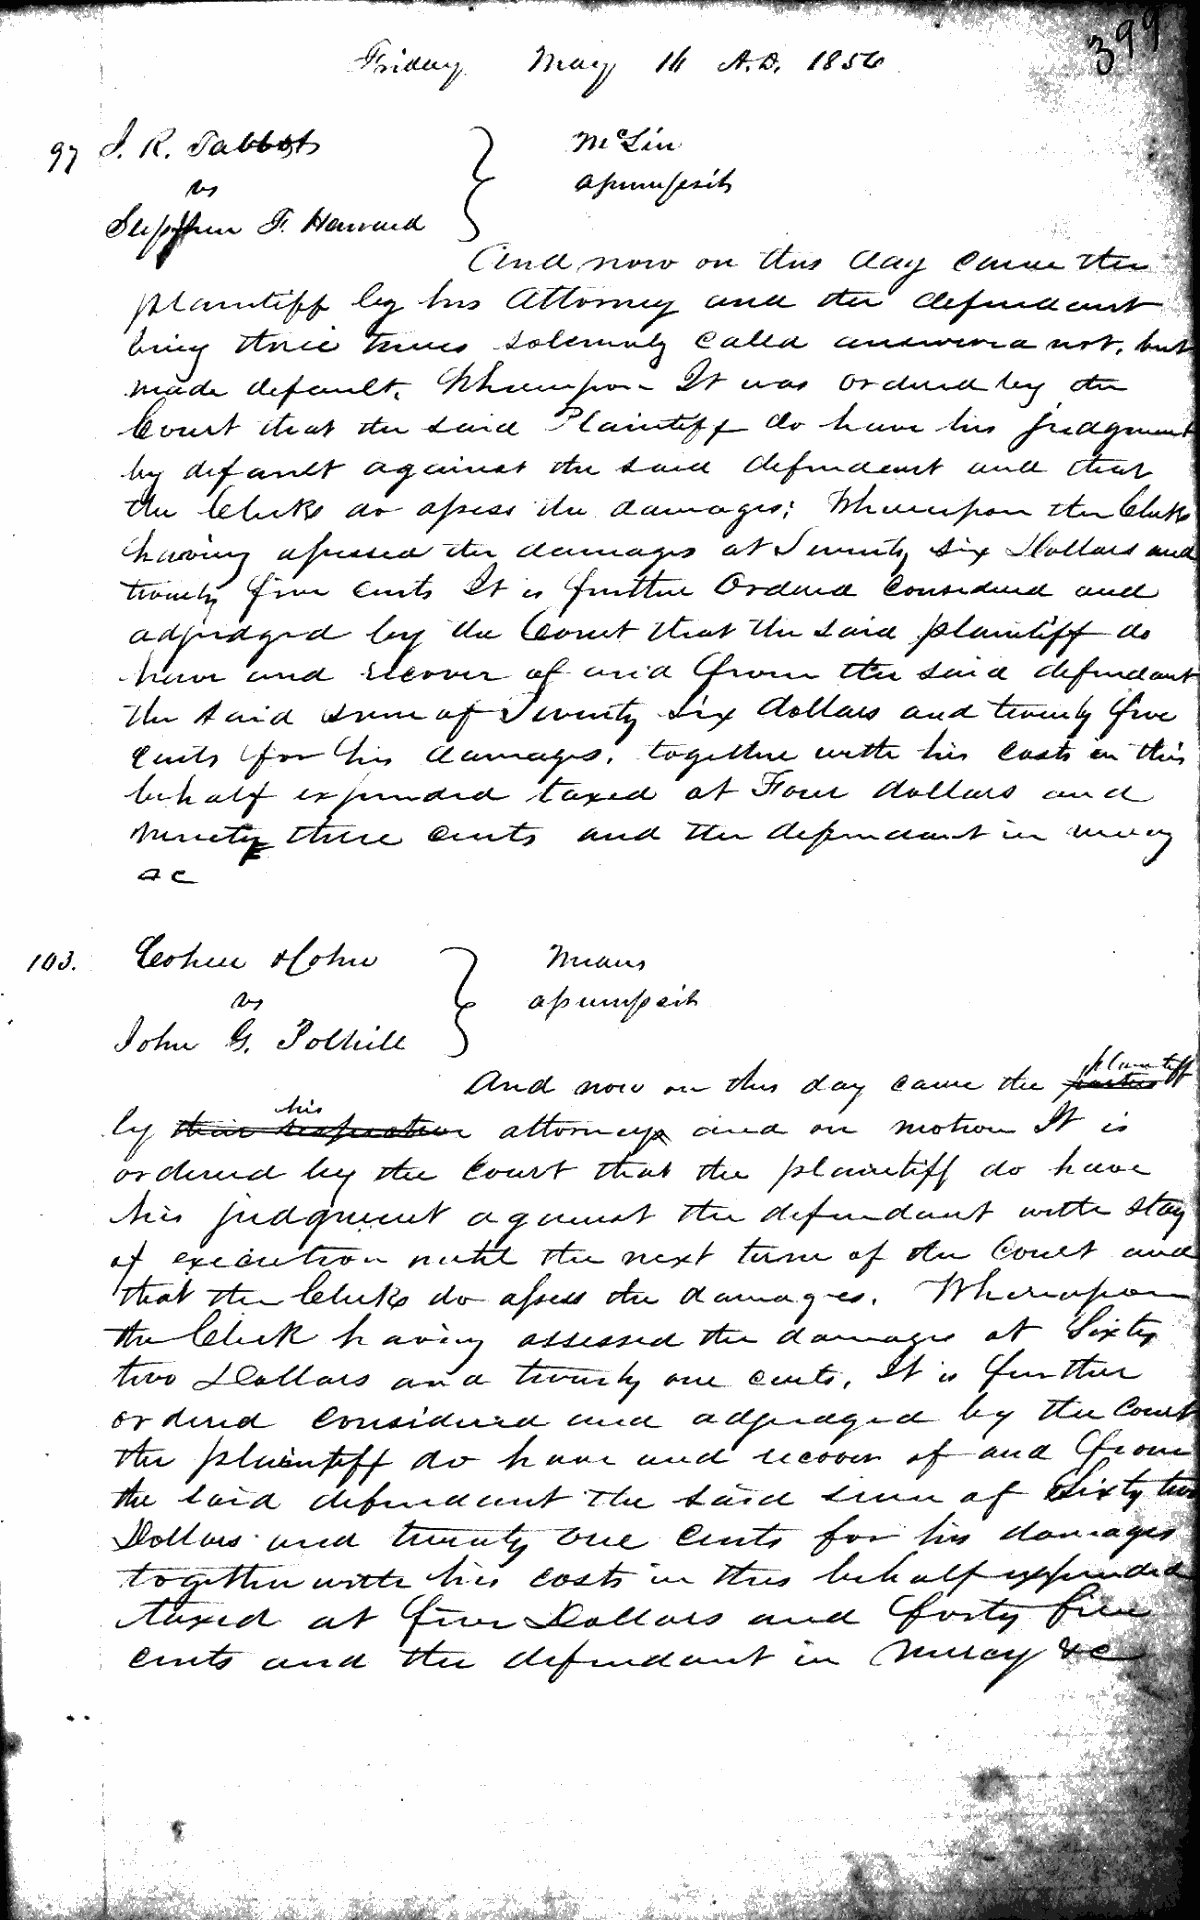 399
Friday May 16 A.D. 1856
97 J. R. Tabbots } McLin
vs assumpsit
Stephen F. Harvard
And now on this day came the
plaintiff by his Attorney and the defendant
being three times solemnly called answered not, but
made default. Whereupon It was ordered by the
Court that the said Plaintiff do have his judgment
by default against the said defendant and that
the Clerks do assess the damages; Whereupon the Clerk
having assessed the damages at Seventy six Dollars and
twenty five cents It is further Ordered Considered and
adjudged by the Court that the said plaintiff do
have and recover of and from the said defendant
the said sum of Seventy Six dollars and twenty five
cents for his damages, together with his costs in this
behalf expended taxed at Four dollars and
ninety three cents and the defendant in mercy
&c
103. Cohen & Cohn } Means
vs assumpsit
John G. Polhill
And now on this day came the parties plaintiff
by their respective his attorneys and on motion It is
ordered by the Court that the plaintiff do have
his judgment against the defendant with stay
of execution until the next term of the Court and
that the Clerks do assess the damages. Whereupon
the Clerk having assessed the damages at Sixty
two Dollars and twenty one cents, It is further
ordered considered and adjudged by the Court
the plaintiff do have and recover of and from
the said defendant the said sum of Sixty two
Dollars and twenty one Cents for his damages
together with his costs in this behalf expended
taxed at five Dollars and forty five
cents and the defendant in mercy &c